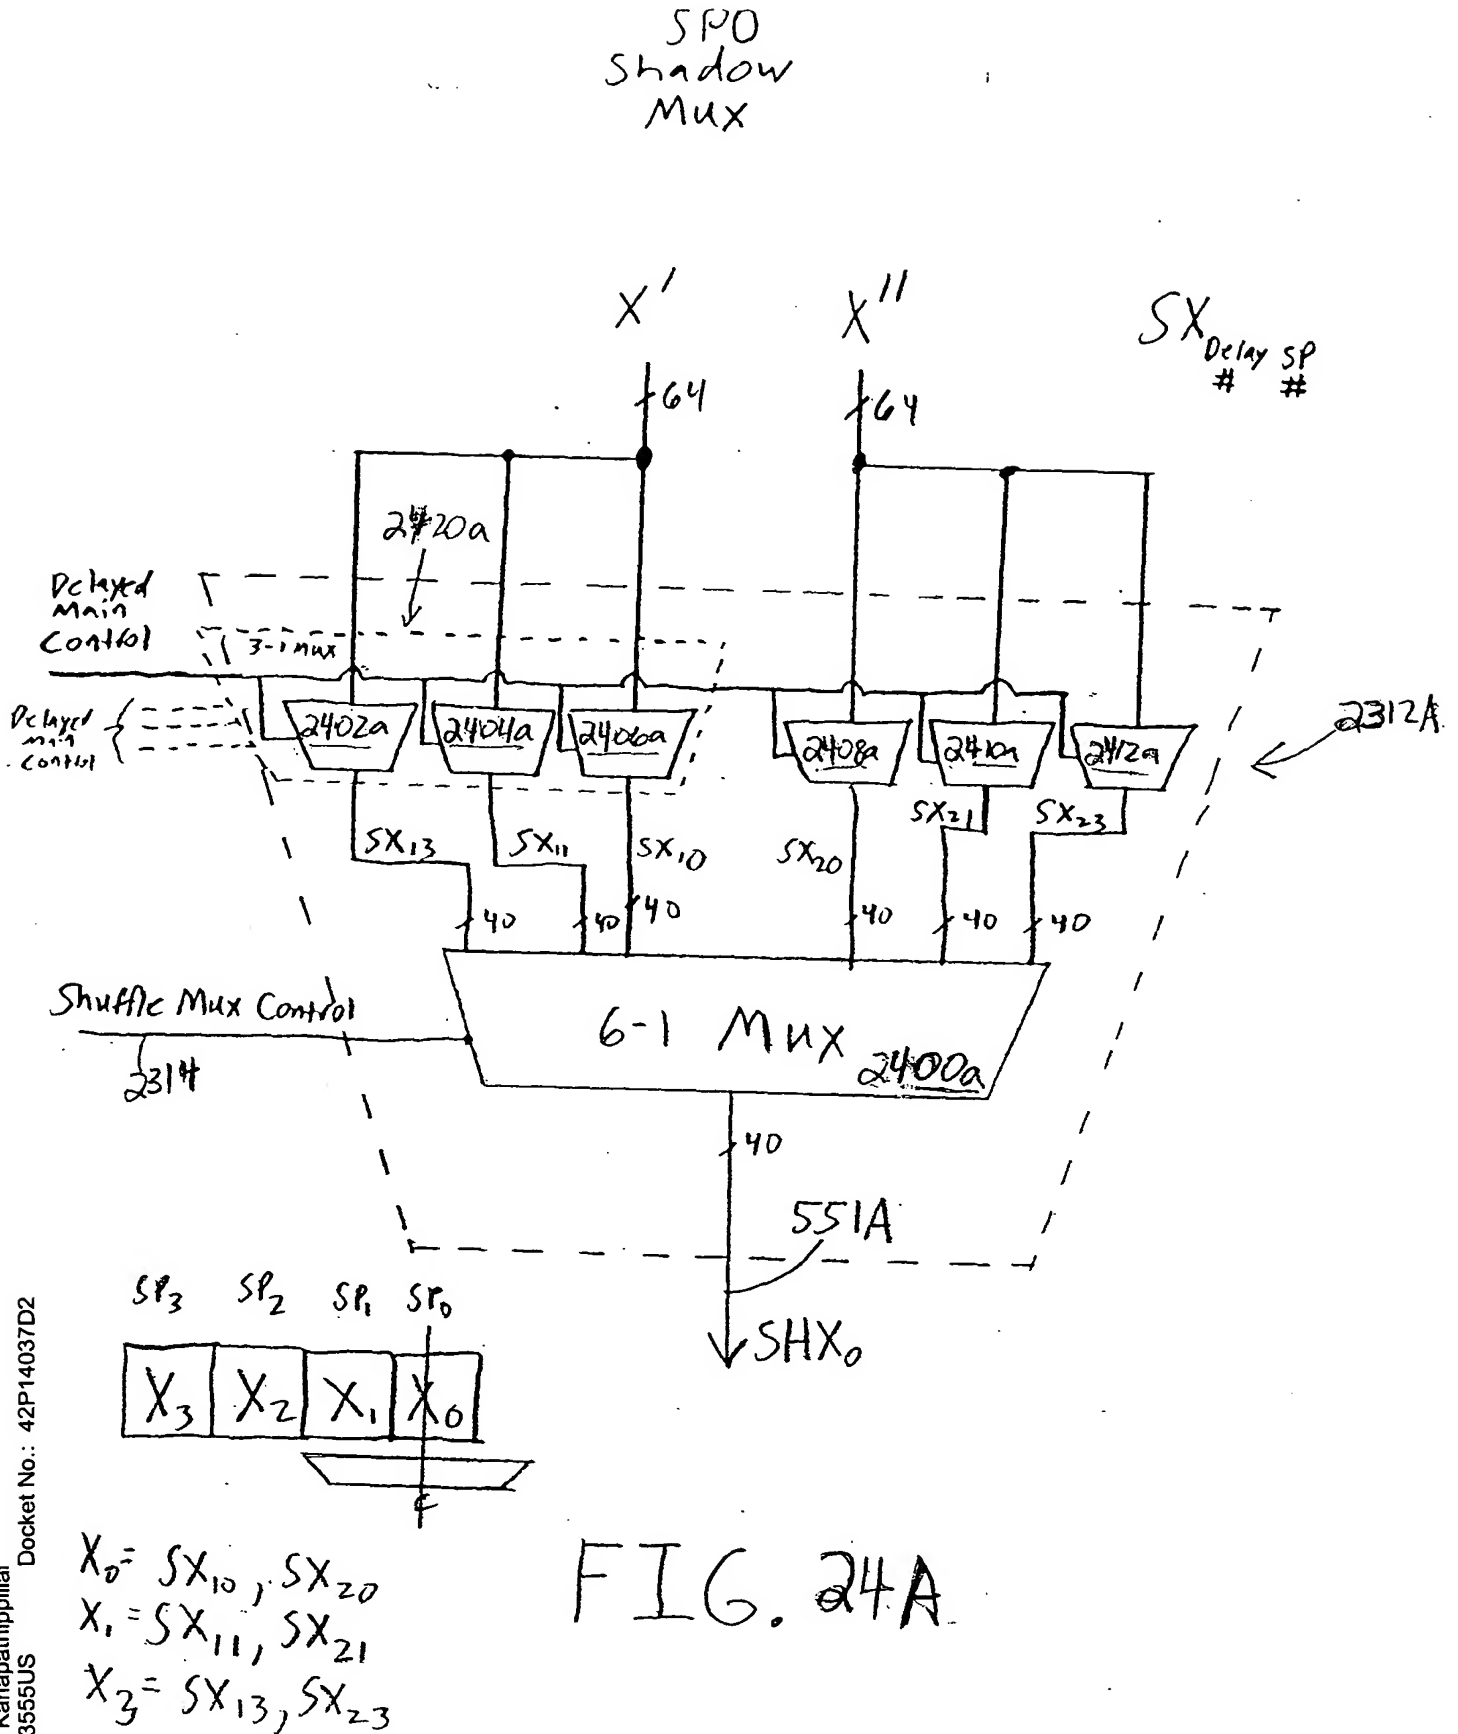 SP0
Shadow
Mux
X'
X''
SX Delay # SP #
64
64
2420a
Delayed
Main
Control
3-1 mux
Delayed
main
control
2402a
2404a
2406a
2408a
2410a
2412a
2312A
SX13
SX11
SX10
SX20
SX21
SX23
40
40
40
40
40
40
Shuffle Mux Control
2314
6-1 Mux
2400a
40
551A
SHX0
SP3 SP2 SP1 SP0
X3 X2 X1 X0
X0= SX10, SX20
X1=SX11, SX21
X3= SX13, SX23
FIG. 24A
Docket No.: 42P14037D2
3555US